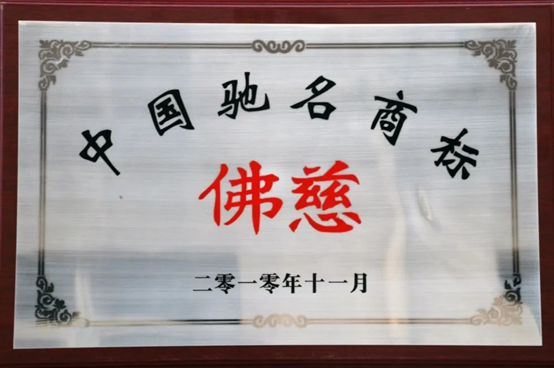 中国驰名商标
佛慈
二零一零年十一月